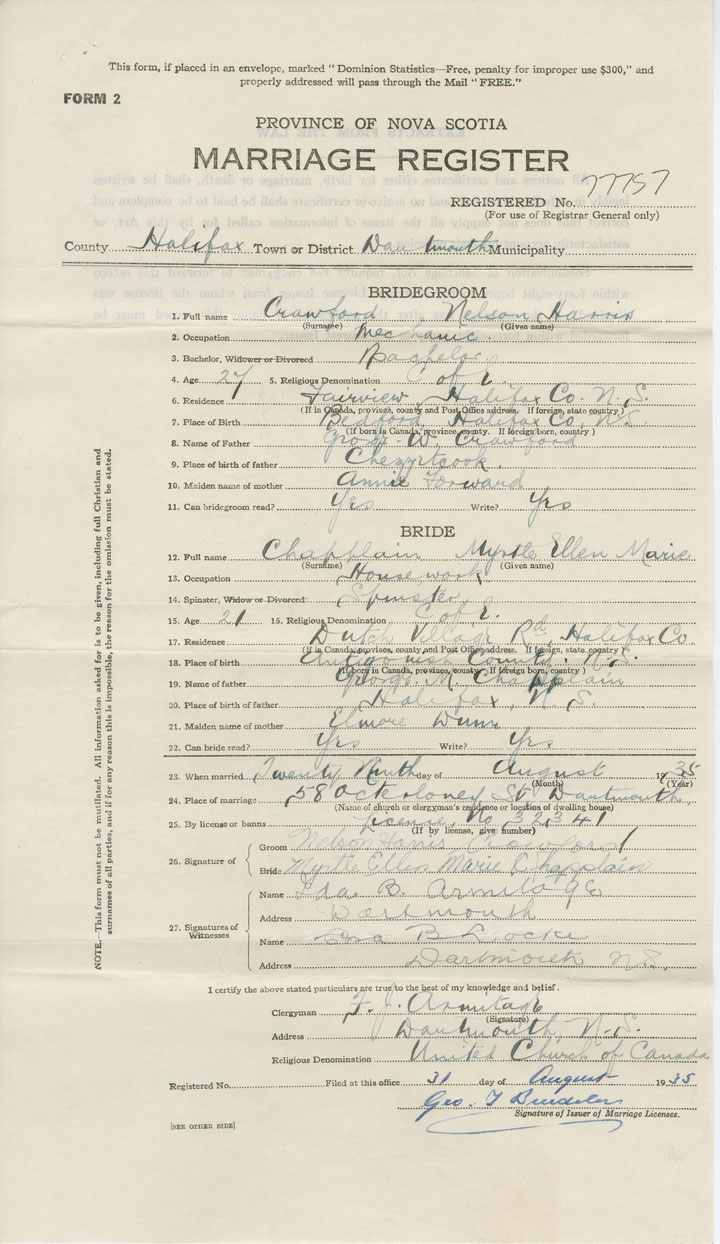 This form, if placed in an envelope, marked "Dominion Statistics—Free, penalty for improper use $300," and
properly addressed will pass through the Mail "FREE."
FORM 2
PROVINCE OF NOVA SCOTIA
MARRIAGE REGISTER
REGISTERED No. 77757
(For use of Registrar General only)
County Halifax Town or District Dartmouth Municipality
BRIDEGROOM
1. Full name Crawford Nelson Harris
(Surname) (Given name)
2. Occupation Mechanic
3. Bachelor, Widower or Divorced Bachelor
4. Age 27 5. Religious Denomination C of E.
6. Residence Fairview, Halifax Co. N.S.
(If in Canada, province, county and Post Office address. If foreign, state country)
7. Place of Birth Bedford Halifax Co. N.S.
(If born in Canada, province, county. If foreign born, country)
8. Name of Father George W. Crawford
9. Place of birth of father Chezzetcook.
10. Maiden name of mother Annie Forward
11. Can bridegroom read? Yes Write? Yes
BRIDE
12. Full name Chapplain Myrtle Ellen Marie
(Surname) (Given name)
13. Occupation Housework
14. Spinster, Widow or Divorced Spinster
15. Age 21 16. Religious Denomination C of E.
17. Residence Dutch Village Rd. Halifax Co.
(If in Canada, province, county and Post Office address. If foreign, state country)
18. Place of birth Antigonish County. N.S.
(If born in Canada, province, county. If foreign born, country)
19. Name of father George M. Chapplain
20. Place of birth of father Halifax, N.S.
21. Maiden name of mother Elmore Dunn
22. Can bride read? Yes Write? Yes
23. When married, Twenty Ninth day of August 1935
(Month) (Year)
24. Place of marriage 58 Octerloney St. Dartmouth,
(Name of church or clergyman's residence or location of dwelling house)
25. By license or banns License No 32341
(If by license, give number)
26. Signature of
Groom Nelson Harris Crawford
Bride Myrtle Ellen Marie Chapplain
27. Signatures of Witnesses
Name Ida. B. Armitage
Address Dartmouth
Name B Locke
Address Dartmouth N.S.
I certify the above stated particulars are true to the best of my knowledge and belief.
Clergyman F. J. Armitage
(Signature)
Address Dartmouth, N.S.
Religious Denomination United Church of Canada
Registered No. Filed at this office 31 day of August 1935
Geo. T
Signature of Issuer of Marriage Licenses.
[SEE OTHER SIDE]
NOTE.—This form must not be mutilated. All information asked for is to be given, including full Christian and
surnames of all parties, and if for any reason this is impossible, the reason for the omission must be stated.